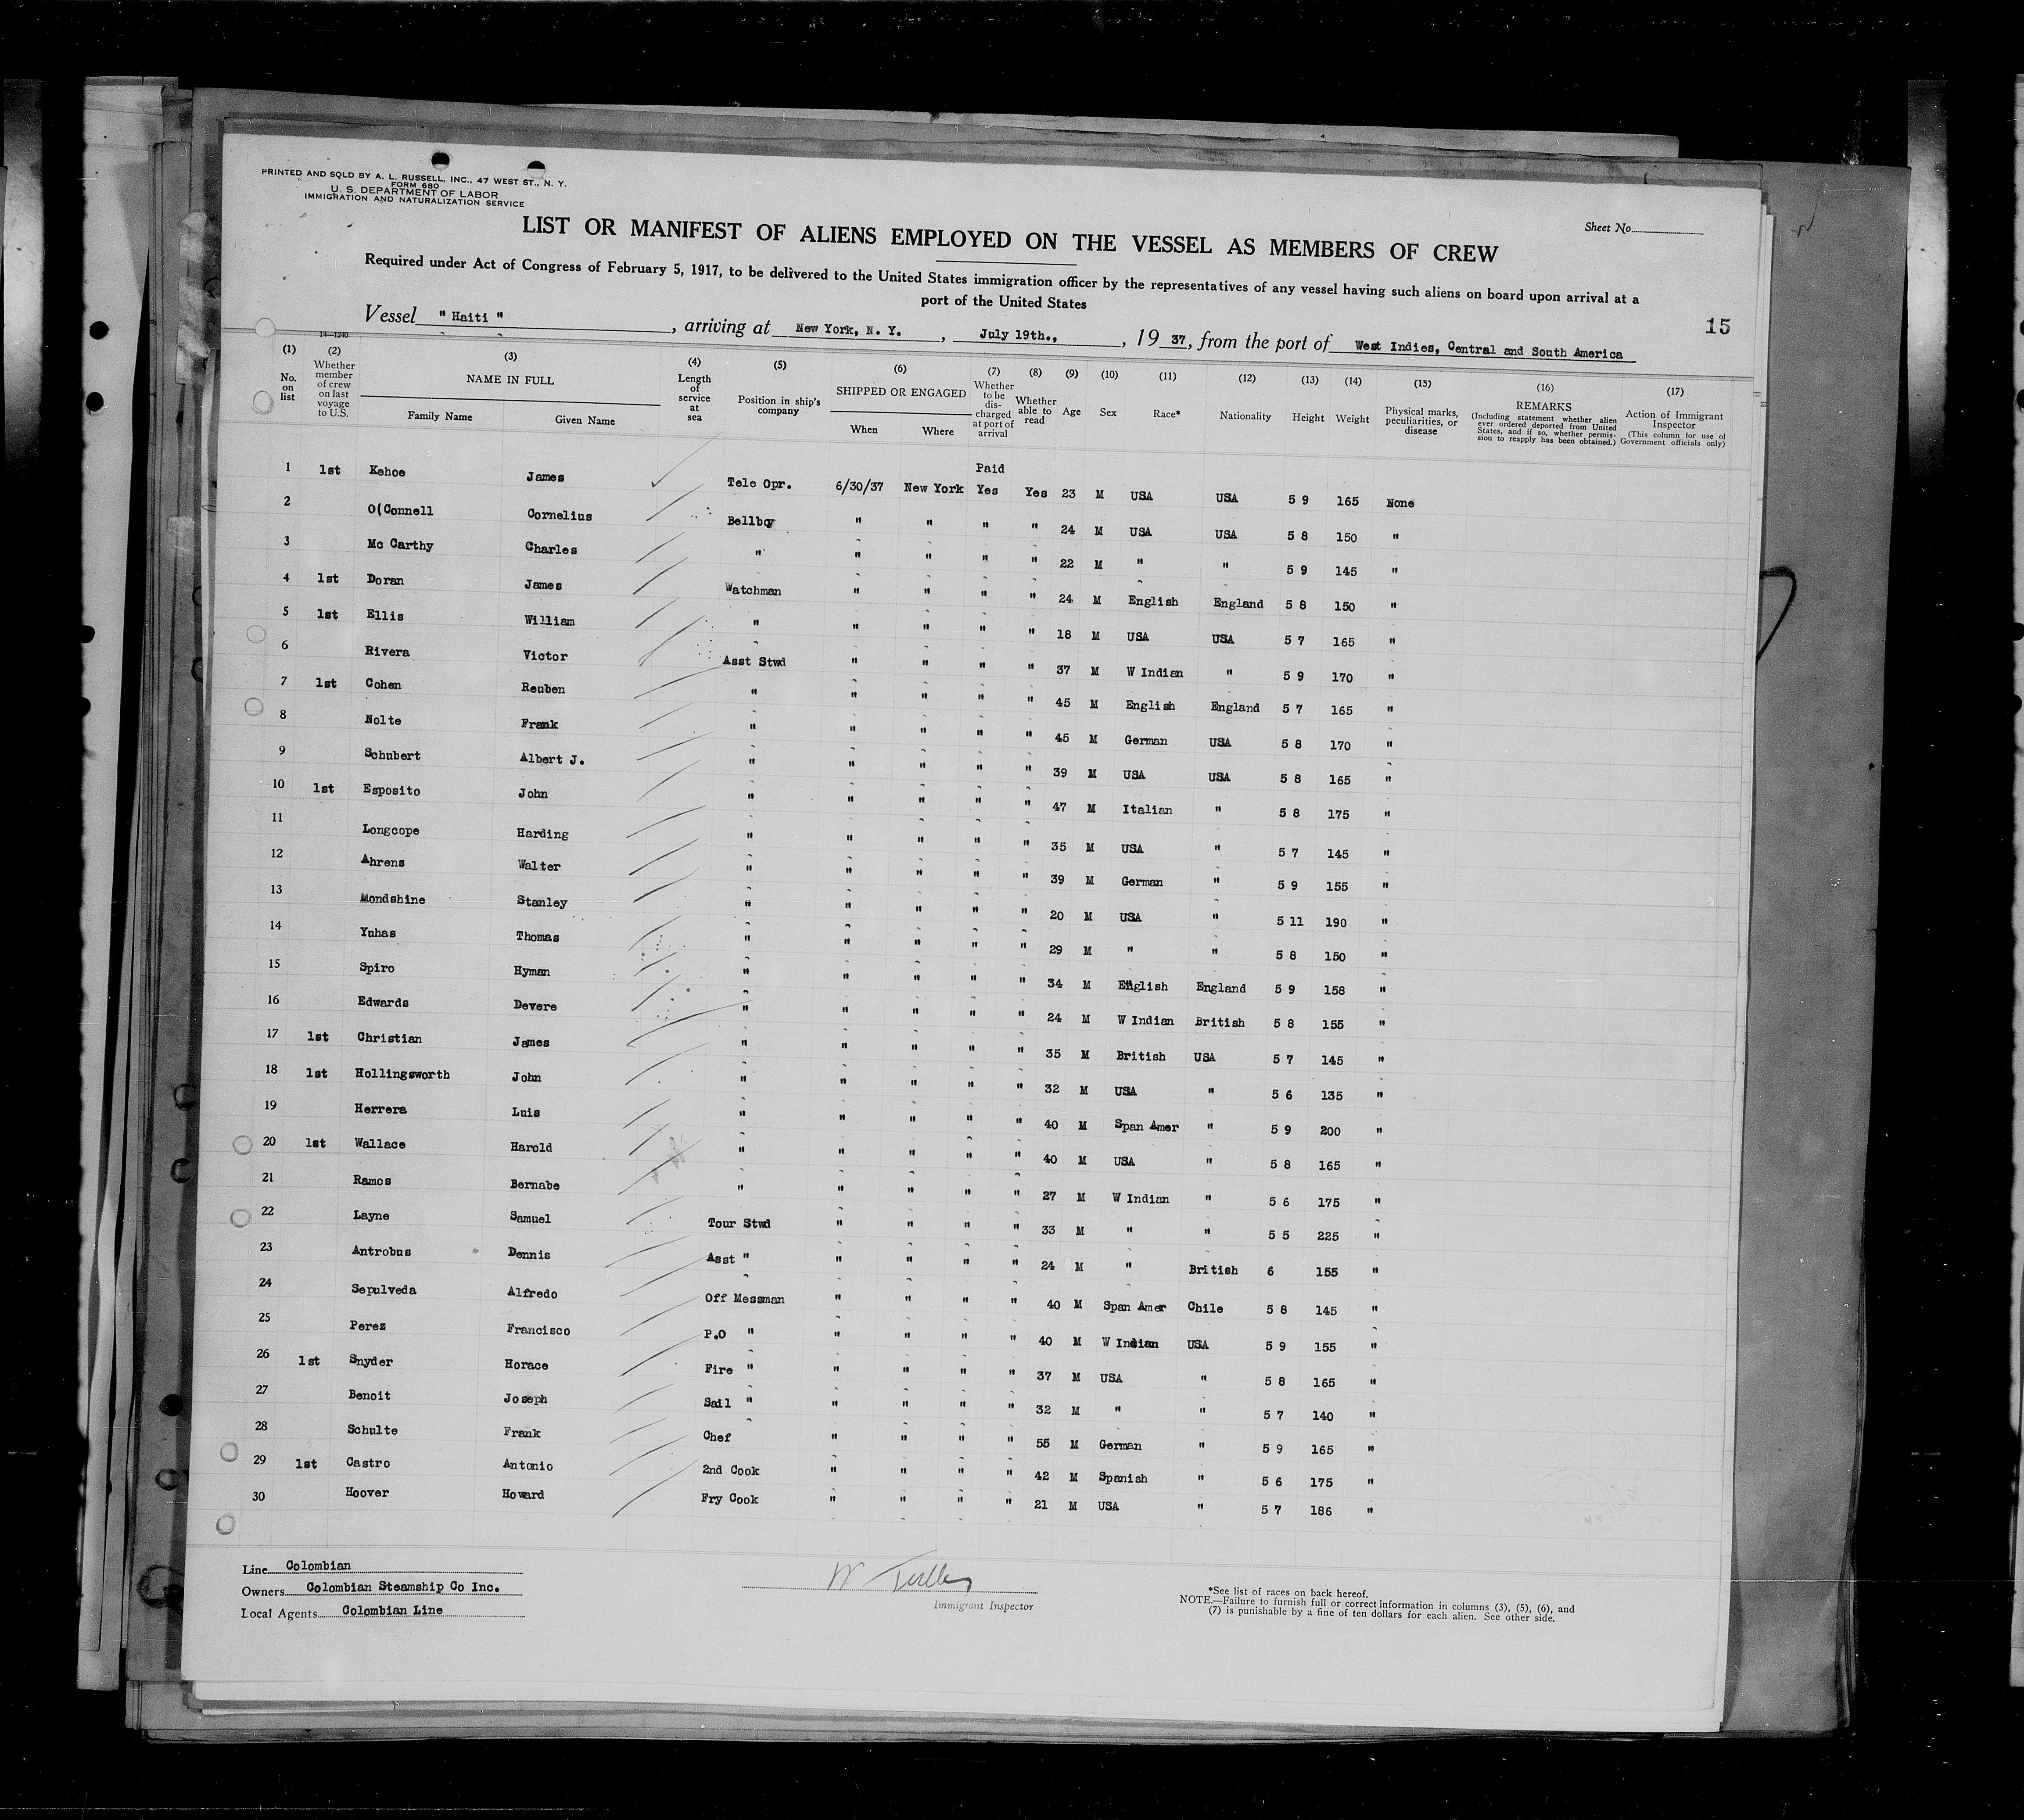 PRINTED AND SOLD BY A. L. RUSSELL, INC., 47 WEST ST., N. Y.
FORM 680
U. S. DEPARTMENT OF LABOR
IMMIGRATION AND NATURALIZATION SERVICE
Sheet No.
LIST OR MANIFEST OF ALIENS EMPLOYED ON THE VESSEL AS MEMBERS OF CREW
Required under Act of Congress of February 5, 1917, to be delivered to the United States immigration officer by the representatives of any vessel having such aliens on board upon arrival at a
port of the United States
15
Vessel " Haiti " , arriving at New York, N. Y. , July 19th., , 19 37, from the port of West Indies, Central and South America
14—1240
(1) No. on list (2) Whether member of crew on last voyage to U.S. (3) NAME IN FULL Family Name Given Name (4) Length of service at sea (5) Position in ship's company (6) SHIPPED OR ENGAGED When Where (7) Whether to be discharged at port of arrival (8) Whether able to read (9) Age (10) Sex (11) Race* (12) Nationality (13) Height (14) Weight (15) Physical marks, peculiarities, or disease (16) REMARKS (Including statement whether alien ever ordered deported from United States, and if so, whether permission to reapply has been obtained.) (17) Action of Immigrant Inspector (This column for use of Government officials only)
Paid
1 1st Kehoe James Tele Opr. 6/30/37 New York Yes Yes 23 M USA USA 5 9 165 None
2 O(Connell Cornelius Bellboy " " " " 24 M USA USA 5 8 150 "
3 Mc Carthy Charles " " " " " 22 M " " 5 9 145 "
4 1st Doran James Watchman " " " " 24 M English England 5 8 150 "
5 1st Ellis William " " " " " 18 M USA USA 5 7 165 "
6 Rivera Victor Asst Stwd " " " " 37 M W Indian " 5 9 170 "
7 1st Cohen Reuben " " " " " 45 M English England 5 7 165 "
8 Nolte Frank " " " " " 45 M German USA 5 8 170 "
9 Schubert Albert J. " " " " " 39 M USA USA 5 8 165 "
10 1st Esposito John " " " " " 47 M Italian " 5 8 175 "
11 Longcope Harding " " " " " 35 M USA " 5 7 145 "
12 Ahrens Walter " " " " " 39 M German " 5 9 155 "
13 Mondshine Stanley " " " " " 20 M USA " 5 11 190 "
14 Yuhas Thomas " " " " " 29 M " " 5 8 150 "
15 Spiro Hyman " " " " " 34 M English England 5 9 158 "
16 Edwards Devere " " " " " 24 M W Indian British 5 8 155 "
17 1st Christian James " " " " " 35 M British USA 5 7 145 "
18 1st Hollingsworth John " " " " " 32 M USA " 5 6 135 "
19 Herrera Luis " " " " " 40 M Span Amer " 5 9 200 "
20 1st Wallace Harold " " " " " 40 M USA " 5 8 165 "
21 Ramos Bernabe " " " " " 27 M W Indian " 5 6 175 "
22 Layne Samuel Tour Stwd " " " " 33 M " " 5 5 225 "
23 Antrobus Dennis Asst " " " " " 24 M " British 6 155 "
24 Sepulveda Alfredo Off Messman " " " " 40 M Span Amer Chile 5 8 145 "
25 Perez Francisco P.O " " " " " 40 M W Indian USA 5 9 155 "
26 1st Snyder Horace Fire " " " " " 37 M USA " 5 8 165 "
27 Benoit Joseph Sail " " " " " 32 M " " 5 7 140 "
28 Schulte Frank Chef " " " " 55 M German " 5 9 165 "
29 1st Castro Antonio 2nd Cook " " " " 42 M Spanish " 5 6 175 "
30 Hoover Howard Fry Cook " " " " 21 M USA " 5 7 186 "
Line Colombian
Owners Colombian Steamship Co Inc.
Local Agents Colombian Line
Immigrant Inspector
*See list of races on back hereof.
NOTE.—Failure to furnish full or correct information in columns (3), (5), (6), and
(7) is punishable by a fine of ten dollars for each alien. See other side.